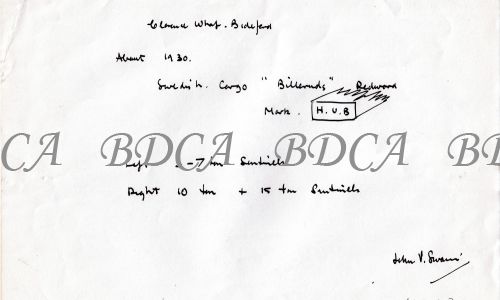 Wharf. Bideford
About 1930.
Swedish. Cargo "Billeruds" Redwood
Mark. H.U.B
BDCA BDCA BDCA
Left - 7 ton Sentinels
Right 10 ton + 15 ton Sentinels
John V. Swain